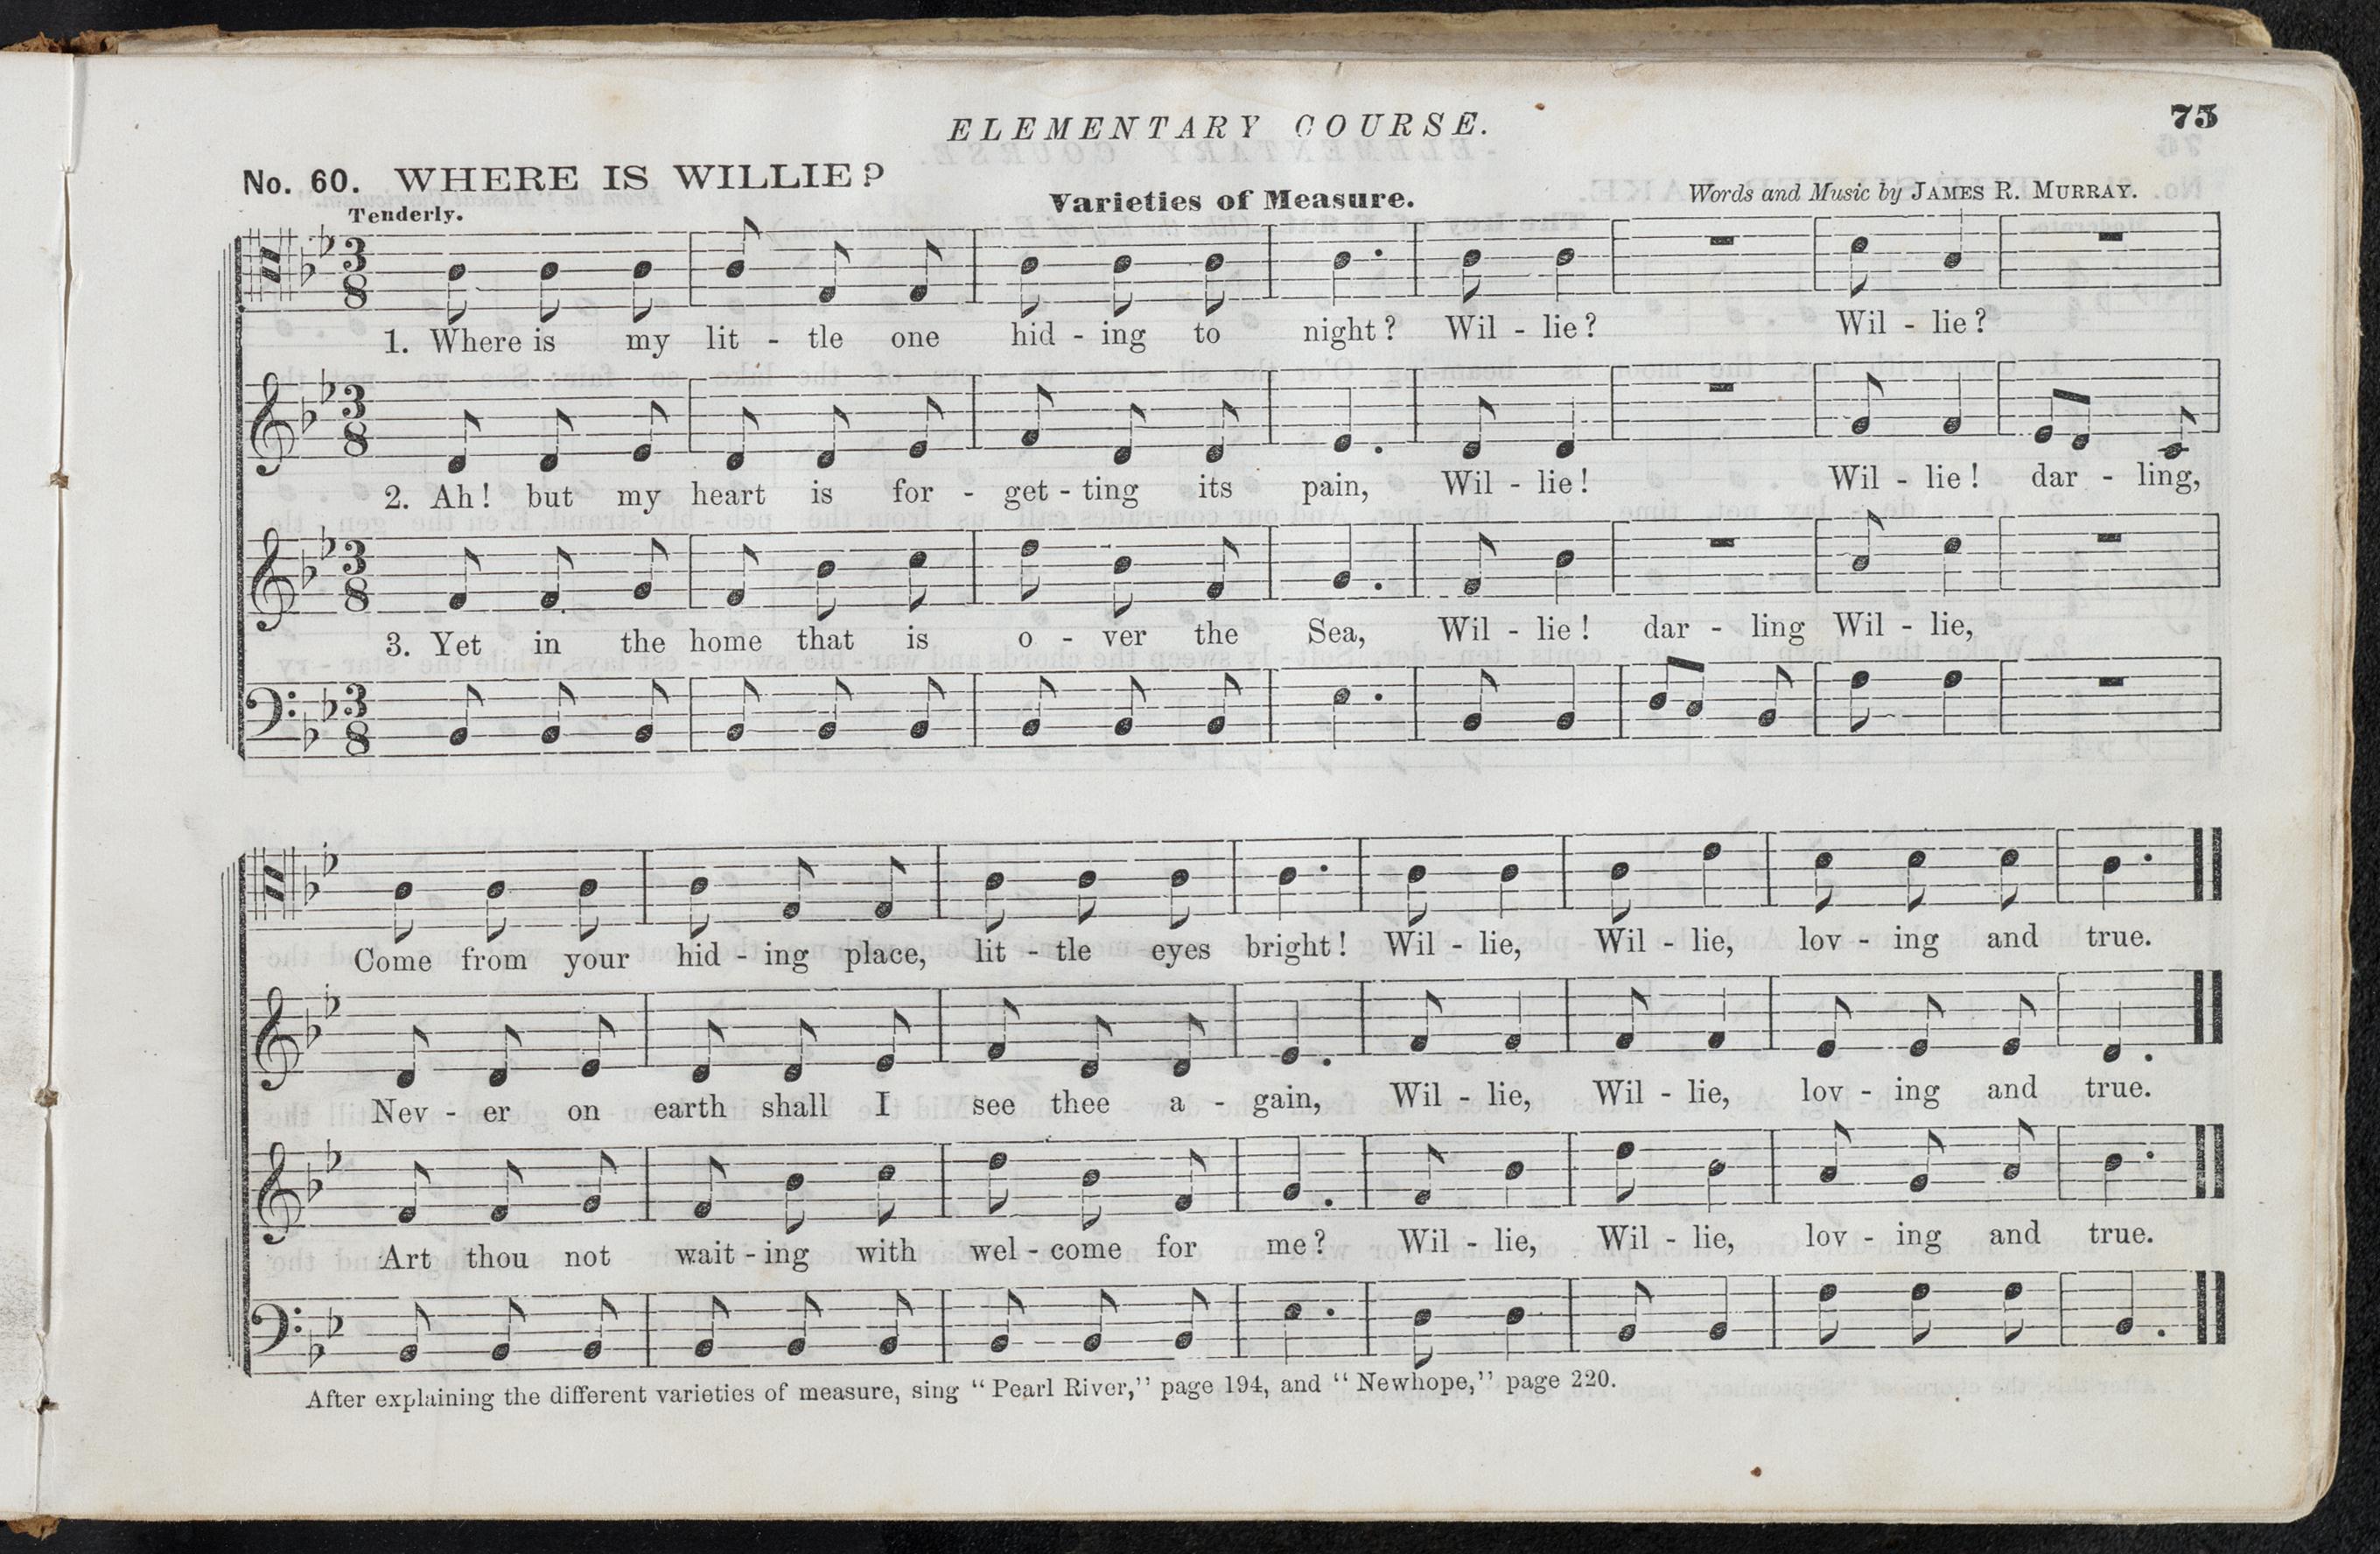 ELEMENTARY COURSE.
75
No. 60. WHERE IS WILLIE?
Tenderly.
Varieties of Measure.
Words and Music by JAMES R. MURRAY.
3 8
1. Where is my lit - tle one hid - ing to night? Wil - lie? Wil - lie?
3 8
2. Ah! but my heart is for - get - ting its pain, Wil - lie! Wil - lie! dar - ling,
3 8
3. Yet in the home that is o - ver the Sea, Wil - lie! dar - ling Wil - lie,
3 8
Come from your hid - ing place, lit - tle eyes bright! Wil - lie, Wil - lie, lov - ing and true.
Nev - er on earth shall I see thee a - gain, Wil - lie, Wil - lie, lov - ing and true.
Art thou not wait - ing with wel - come for me? Wil - lie, Wil - lie, lov - ing and true.
After explaining the different varieties of measure, sing "Pearl River," page 194, and "Newhope," page 220.